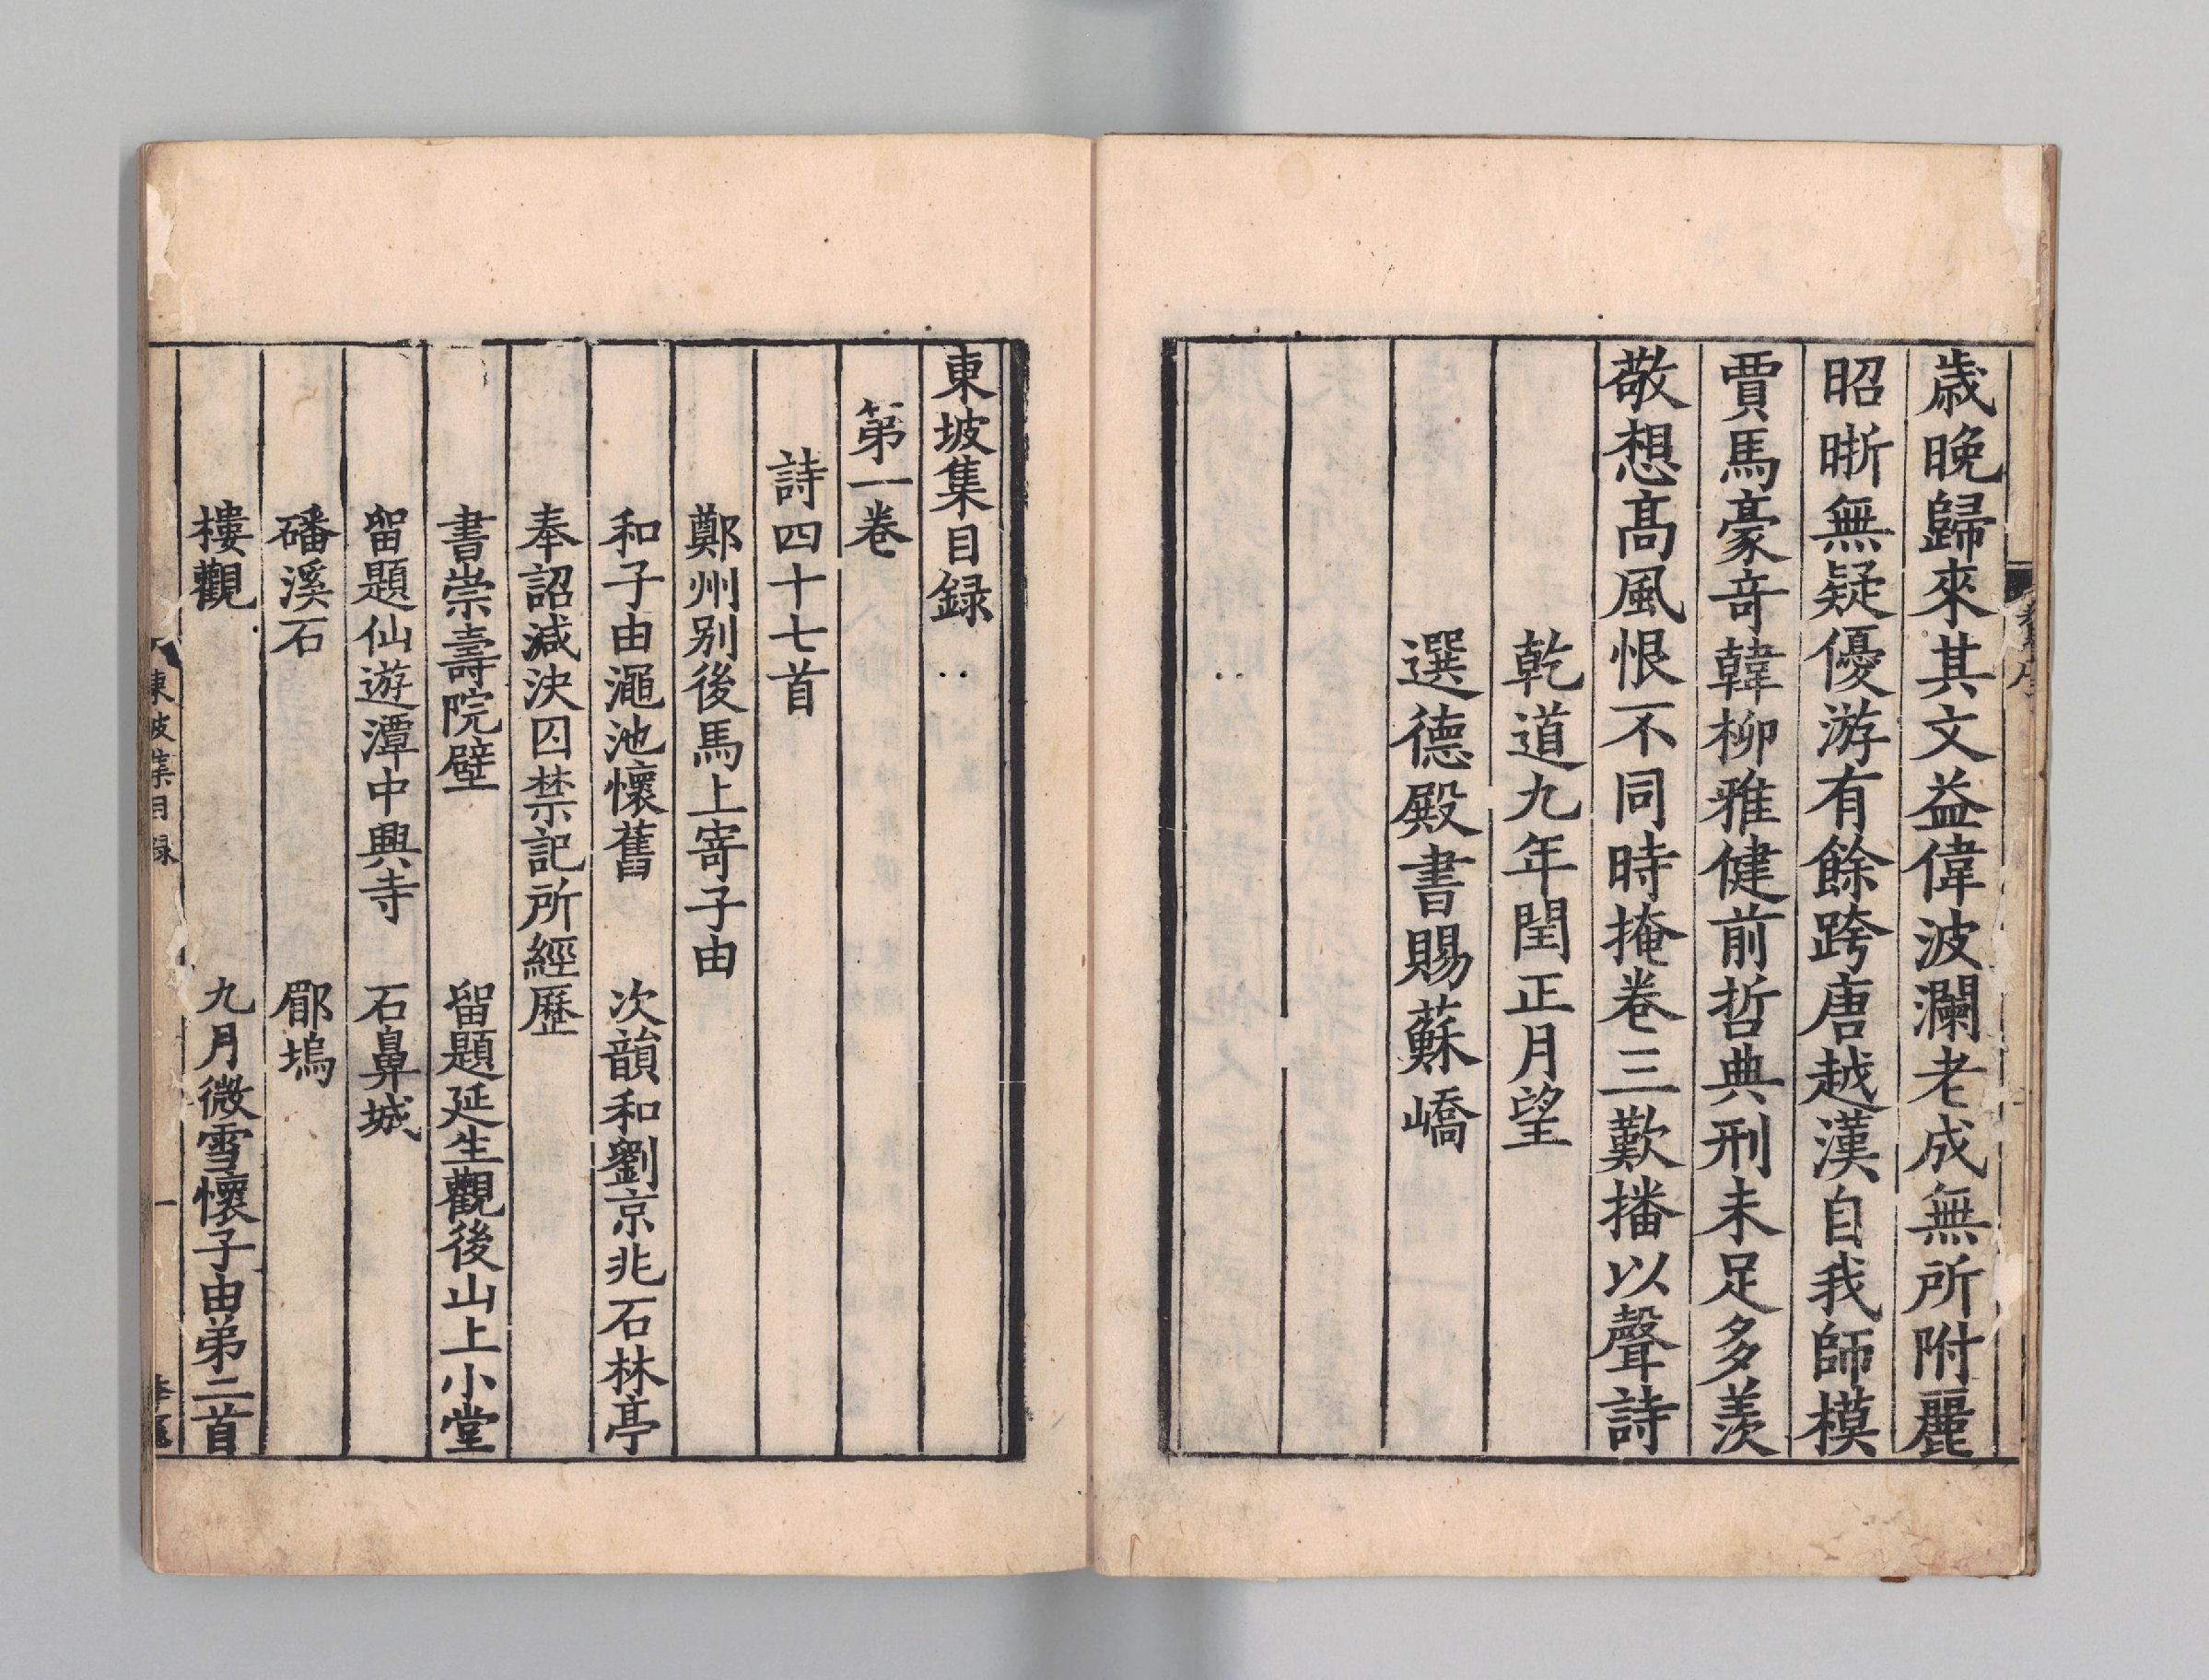 歲晚歸來其文益偉波瀾老成無所附麗
昭晣無疑優游有餘跨唐越漢自我師模
賈馬豪竒韓柳雅健前哲典刑未足多羨
敬想髙風恨不同時掩卷三歎播以聲詩
乾道九年閏正月望
選德殿書賜蘇嶠
東坡集目録
第一卷
詩四十七首
鄭州别後馬上寄子由
和子由澠池懷舊 次韻和劉京兆石林亭
奉詔減決囚禁記所經歷
書崇壽院壁 留題延生觀後山上小堂
留題仙遊潭中興寺 石鼻城
磻溪石 郿塢
樓觀 九月微雪懷子由弟二首
東坡集目録
一